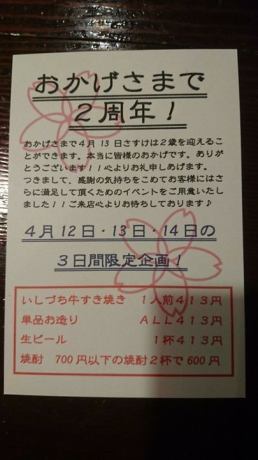 おかげさまで
2周年!
おかげさまで4月13日さすけは2歳を迎えるこ
とができます。本当に皆様のおかげです。ありが
とうございます!!心よりお礼申しあげます。
つきまして、感謝の気持ちをこめてお客様にはさ
らに満足して頂くためのイベントをご用意いたし
ました!!ご来店心よりお待ちしております♪
4月12日・13日・14日の
3日間限定企画!
いしづち牛すき焼き 1人前413円
単品お造り ALL413円
生ビール 1杯413円
焼酎 700円以下の焼酎2杯で600円